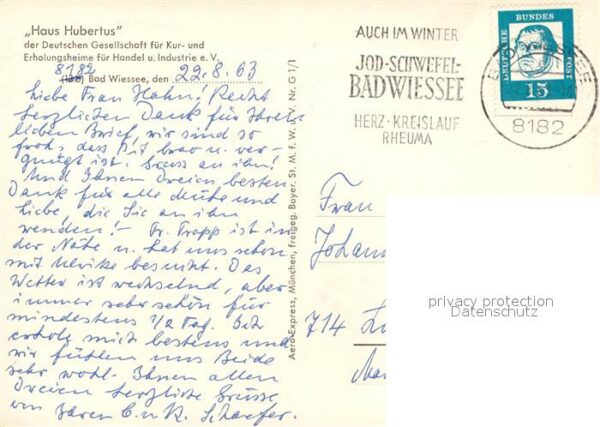 „Haus Hubertus"
der Deutschen Gesellschaft für Kur- und
Erholungsheime für Handel u. Industrie e. V.
8182
Bad Wiessee, den 22.8.63
Liebe Frau Hahn! Recht
herzlichen Dank für Ihren
lieben Brief, wir sind so
froh, dass Pit brav u. ver-
gnügt ist. Gruss an ihn!
Und Ihnen Dreien besten
Dank für alle Mühe und
Liebe, die Sie an ihn
wenden! – Fr. Trapp ist in
der Nähe u. hat uns schon
mit Ulrike besucht. Das
Wetter ist wechselnd, aber
immer sehr schön für
mindestens 1/2 Tag. Ich
erhole mich bestens und
wir fühlen uns Beide
sehr wohl. Ihnen allen
Dreien herzliche Grüsse
von Ihren C. u. K. Schaefer.
Aero-Express, München, freigeg. Bayer. St. M. f. W. u. V. Nr. G 1/1
AUCH IM WINTER
JOD-SCHWEFEL-
BAD WIESSEE
HERZ-KREISLAUF
RHEUMA
DEUTSCHE BUNDESPOST
15
BAD WIESSEE
8182
Frau
Johan
714
privacy protection
Datenschutz